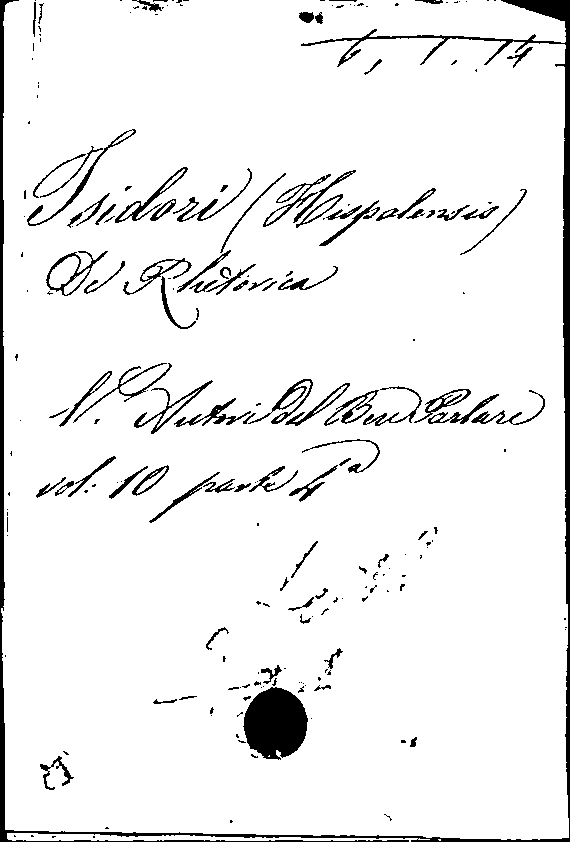 6, 1. 14
Isidori (Hispalensis)
De Rhetorica
V. Autori del Ben Parlare
vol: 10 parte 4ª